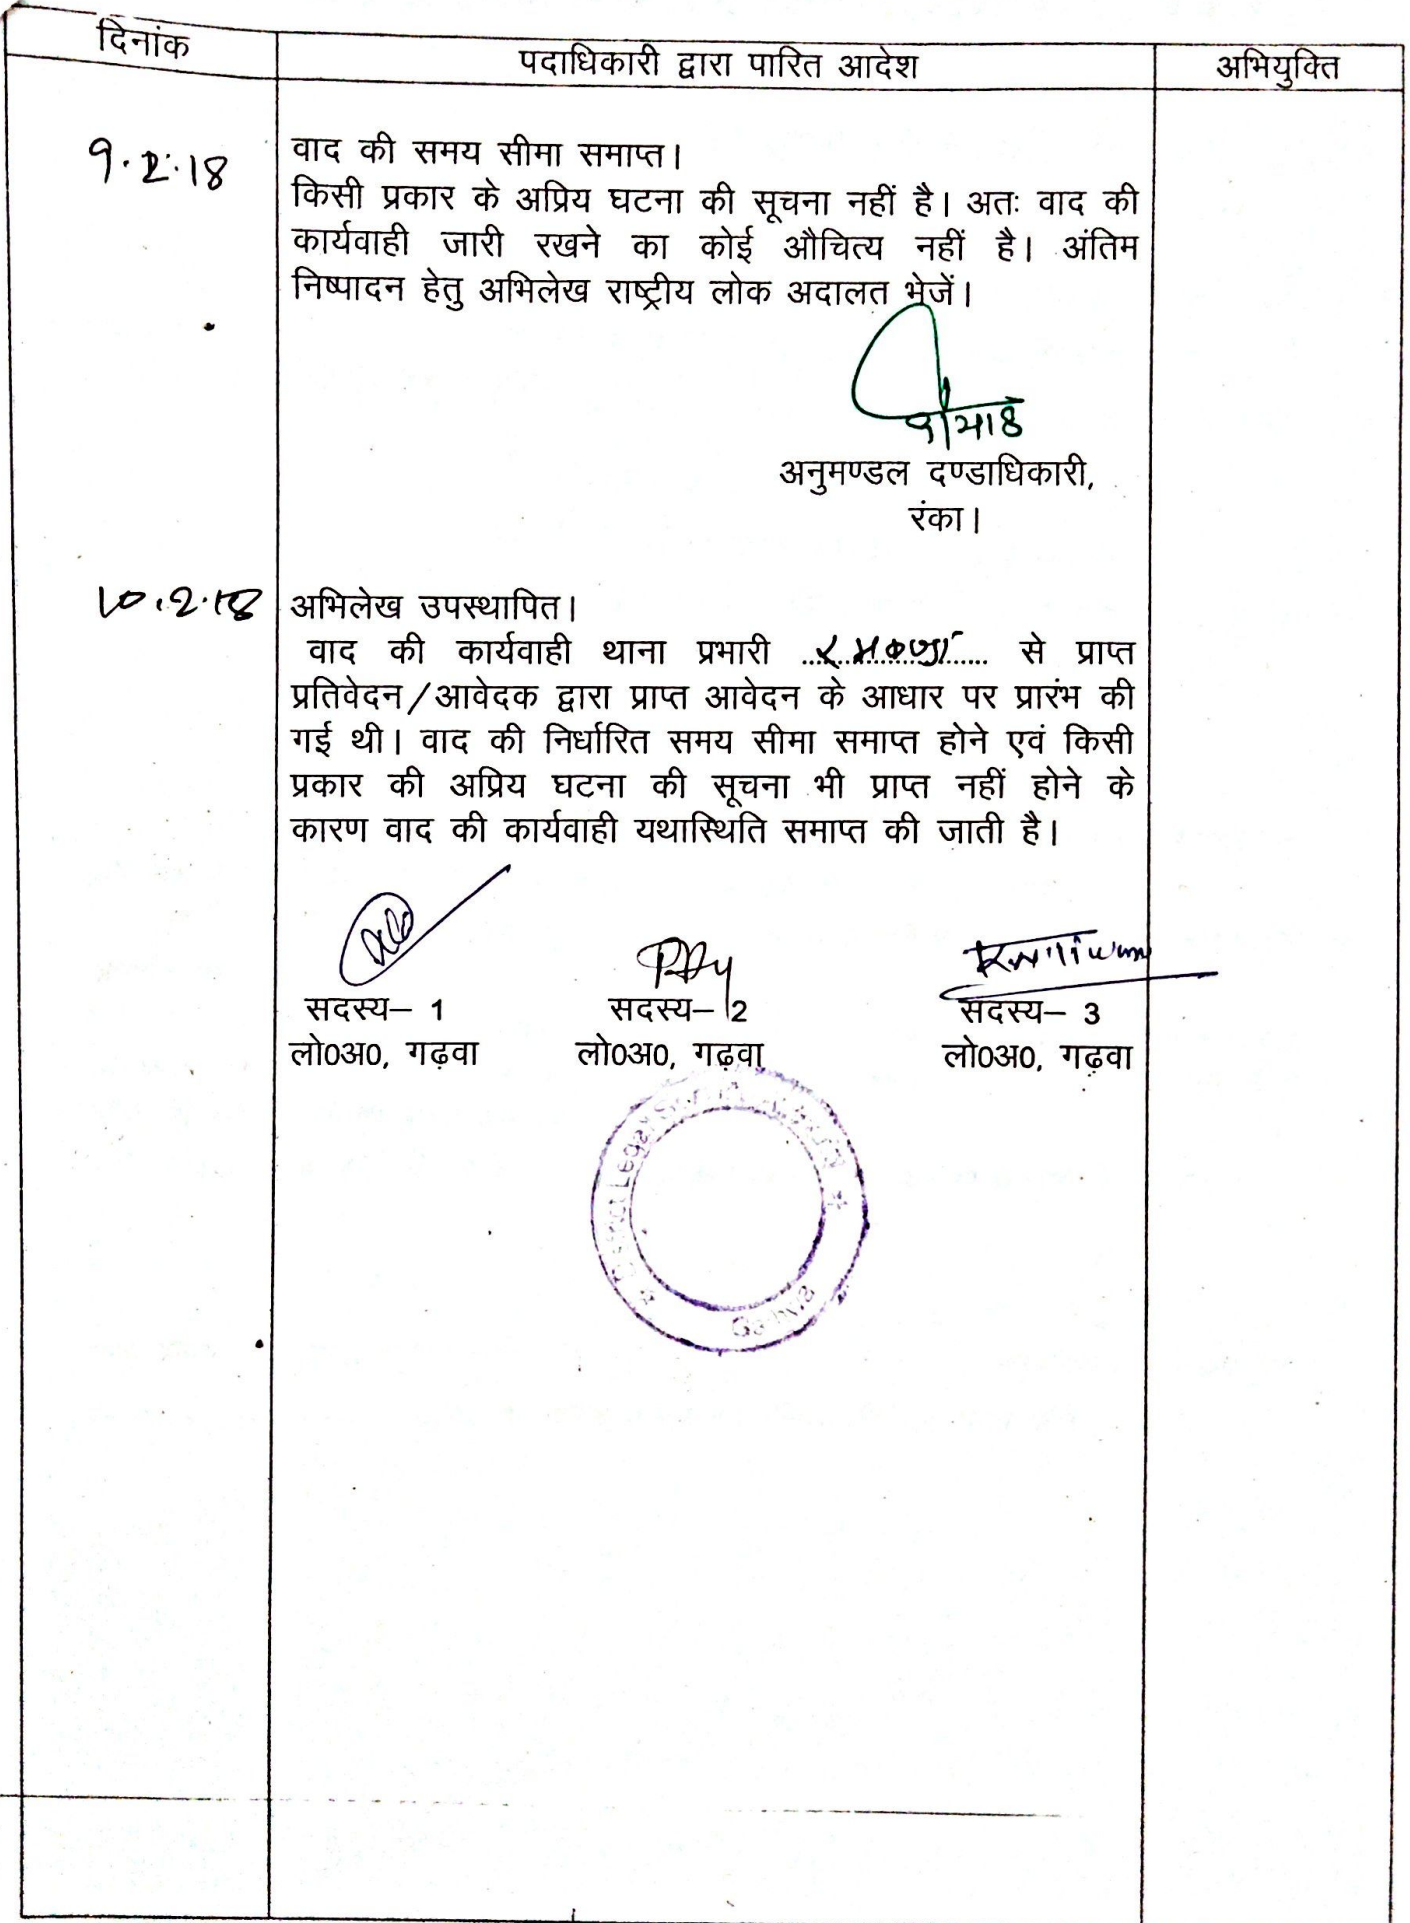 दिनांक
पदाधिकारी द्वारा पारित आदेश
अभियुक्ति
9.2.18
वाद की समय सीमा समाप्त।
किसी प्रकार के अप्रिय घटना की सूचना नहीं है। अतः वाद की
कार्यवाही जारी रखने का कोई औचित्य नहीं है। अंतिम
निष्पादन हेतु अभिलेख राष्ट्रीय लोक अदालत भेजें।
अनुमण्डल दण्डाधिकारी,
रंका।
10.2.18
अभिलेख उपस्थापित।
वाद की कार्यवाही थाना प्रभारी से प्राप्त
प्रतिवेदन/आवेदक द्वारा प्राप्त आवेदन के आधार पर प्रारंभ की
गई थी। वाद की निर्धारित समय सीमा समाप्त होने एवं किसी
प्रकार की अप्रिय घटना की सूचना भी प्राप्त नहीं होने के
कारण वाद की कार्यवाही यथास्थिति समाप्त की जाती है।
सदस्य– 1 सदस्य– 2 सदस्य– 3
लो0अ0, गढ़वा लो0अ0, गढ़वा लो0अ0, गढ़वा
District Legal
Garhwa